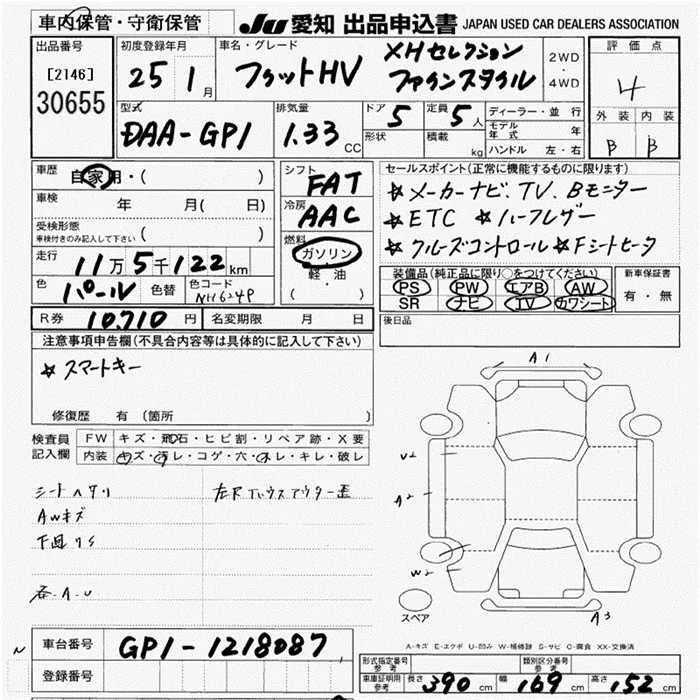 車内保管・守衛保管
JU 愛知 出品申込書 JAPAN USED CAR DEALERS ASSOCIATION
出品番号
[2146]
30655
初度登録年月
25 1月
車名・グレード
フィットHV
XHセレクション
ファインスタイル
2WD
・
4WD
評価点
4
外装 内装
B B
型式
DAA-GP1
排気量
1.33 CC
ドア 5
形状
定員 5人
積載 kg
ディーラー・並行
モデル年式 年
ハンドル 左・右
車歴
自家用・( )
車検 年 月( 日)
受検形態
車検付きのみ記入して下さい ( )
走行 11万5千122km
色 パール 色替 色コード NH624P
シフト
FAT
冷房
AAC
燃料
ガソリン
軽・油
( )
セールスポイント(正常に機能するものに限ります)
☆メーカーナビ、TV、Bモニター
☆ETC ☆ハーフレザー
☆クルーズコントロール ☆Fシートヒータ
装備品(純正品に限り○をつけてください)
PS PW エアB AW
SR ナビ TV カワシート
新車保証書
有・無
R券 10,710円 名変期限 月 日
後日品
注意事項申告欄(不具合内容等は具体的に記入して下さい)
☆スマートキー
修復歴 有(箇所 )
検査員
記入欄
FW キズ・飛石・ヒビ割・リペア跡・X要
内装 キズ・汚レ・コゲ・穴・スレ・キレ・破レ
シートヘタリ
AWキズ
下回りS
各.A.U
A1
U2
A2
W2
A3
スペア
A-キズ E-エクボ U-凹み W-補修跡 S-サビ C-腐食 XX-交換済
車台番号 GP1-1218087
登録番号
形式指定番号
参考
類別区分番号
参考
車庫証明用
参考
長さ 390cm 幅 169cm 高さ 152cm